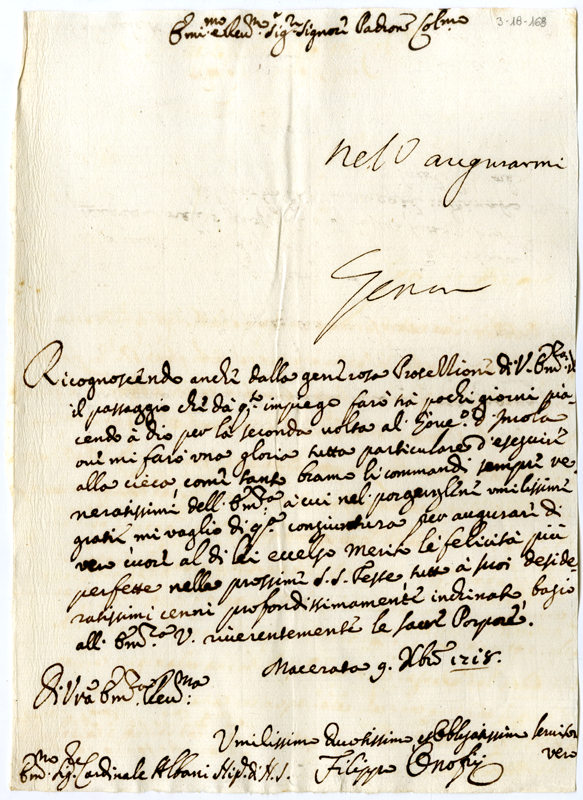 3-18-168
Em:mo e Reu:mo Sig:re Signore Padrone Col:mo
Nell' augurarmi
Gen
Ricognoscendo anche dalla generosa Protettione di V. Em:za il
il passaggio che da q:to impiego farò trà pochi giorni pia=
cendo à Dio per la seconda volta al Gove:o d'Imola
oue mi farò vna gloria tutta particulare d'eseguire
alla cieca, come tanto bramo li commandi sempre ve=
neratissimi dell' Em:za à cui nel porgerglene vmilissime
gratie mi vaglio di q:ta congiuntura per augurare di
vero cuore al di lei eccelso merito le felicità più
perfette nelle prossime S.S. Feste, tutto à suoi deside=
ratissimi cenni profondissimamente inclinato bagio
all' Em:za V. riuerentemente le sacre Porpore.
Macerata 9. Xbre 1718.
Di V:ra Em:za Reu:ma
Vmilissimo Diuotissimo ed Obblig:atissimo seruitor
vero
Em:mo Sig: Cardinale Albani Nip: di N. S.
Filippo Onofrij